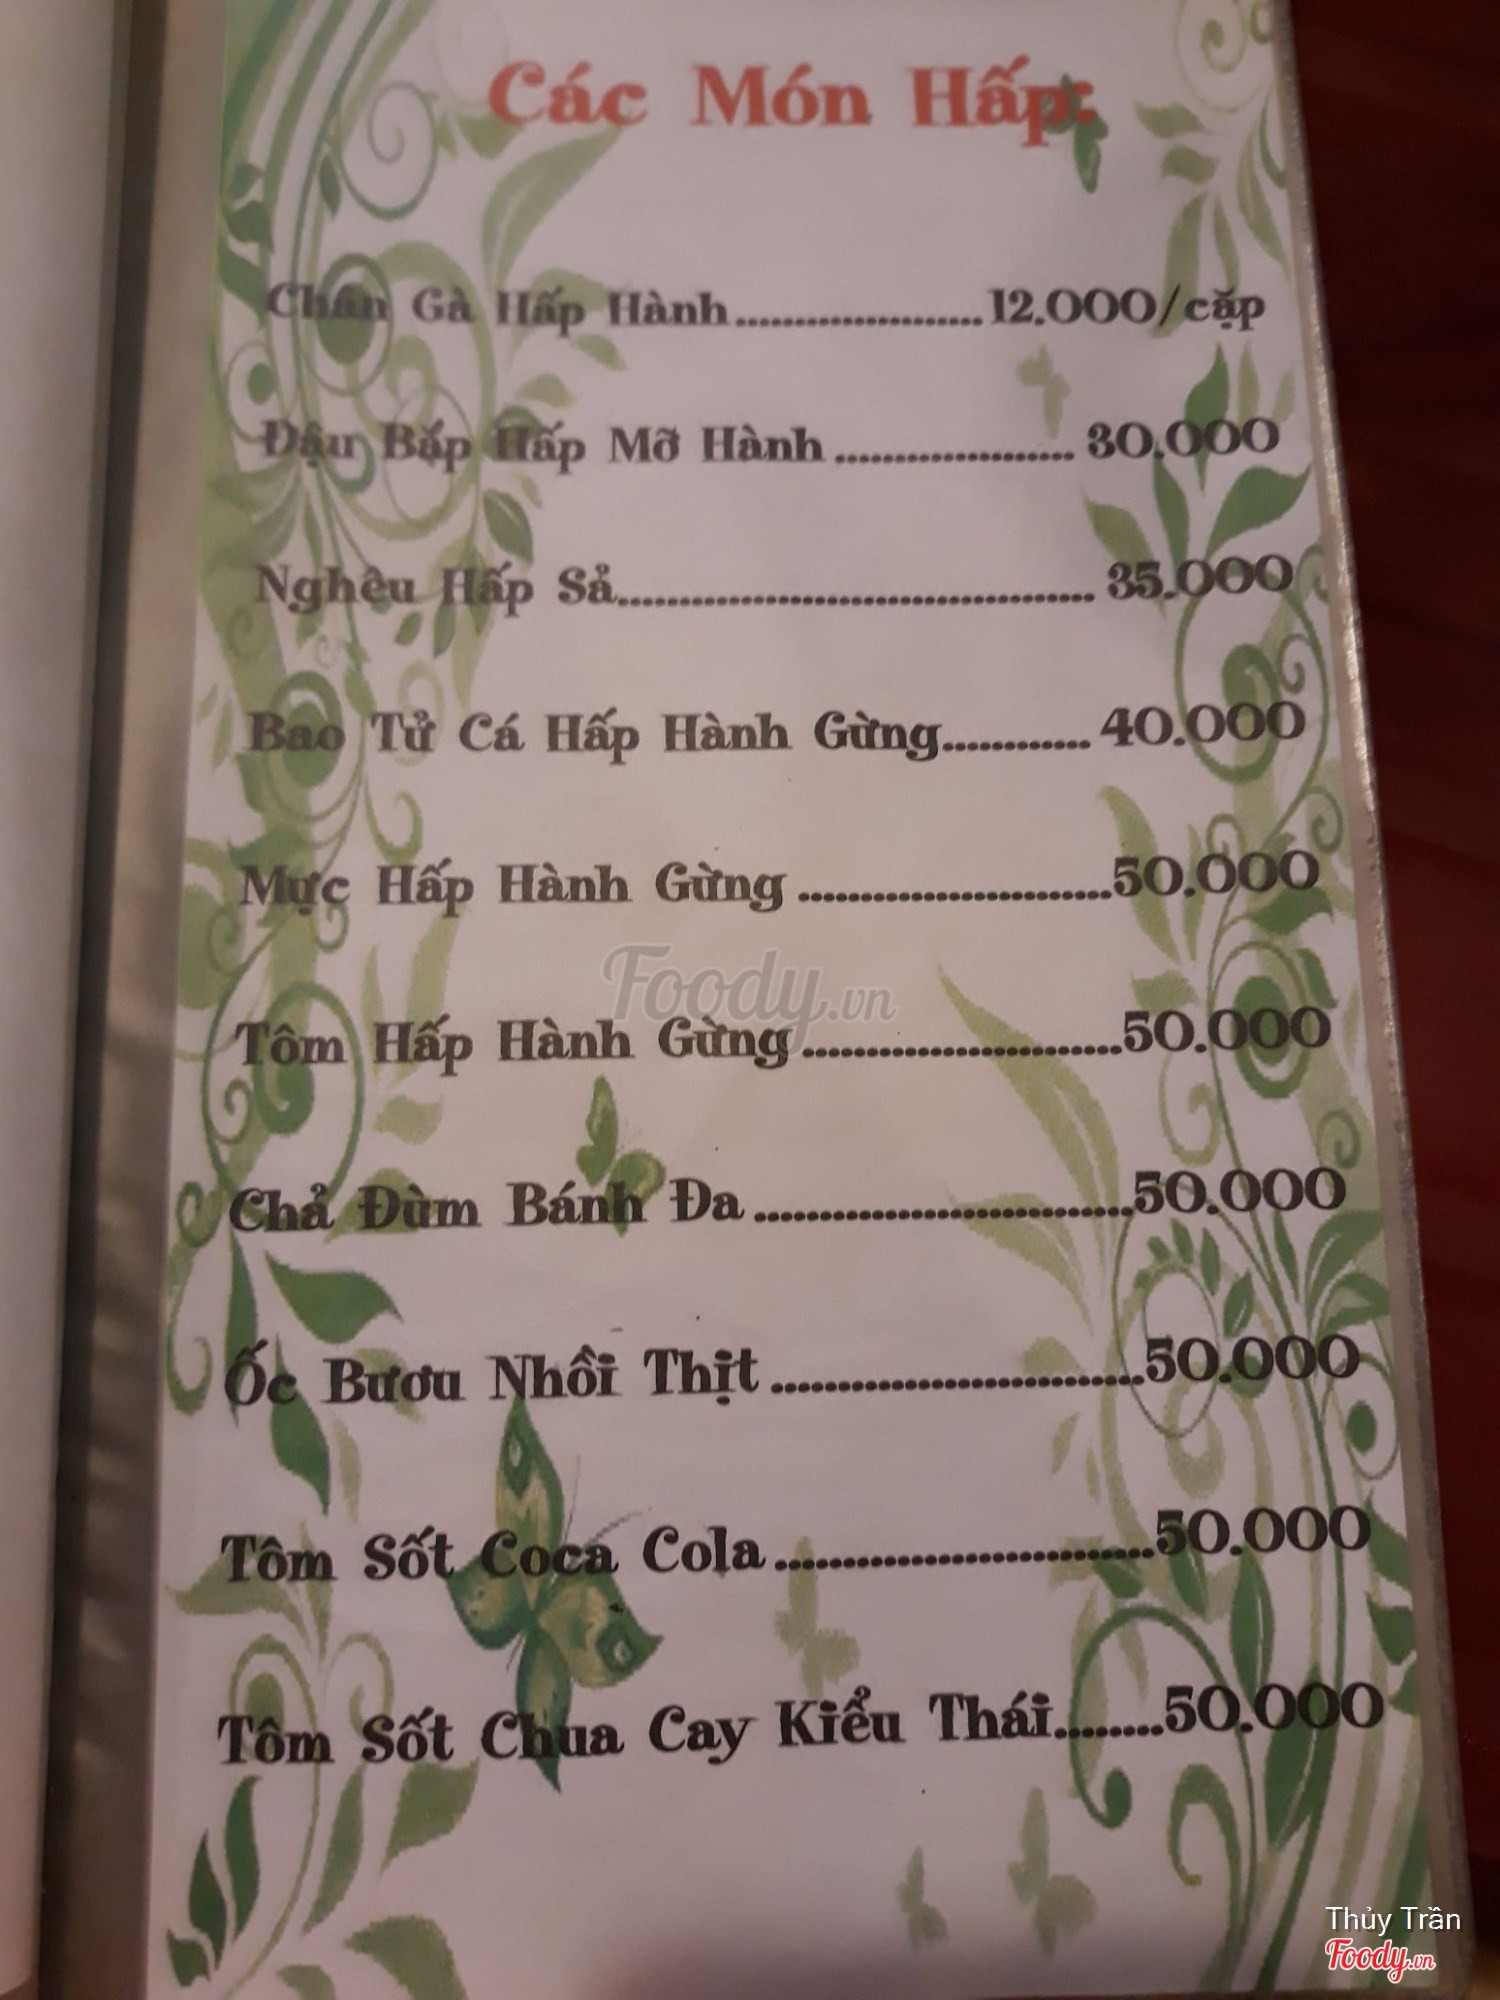 Các Món Hấp:
Chân Gà Hấp Hành.....................12.000/cặp
Đậu Bắp Hấp Mỡ Hành.................... 30.000
Nghêu Hấp Sả....................................... 35.000
Bao Tử Cá Hấp Hành Gừng............ 40.000
Mực Hấp Hành Gừng ..........................50.000
Foody.vn
Tôm Hấp Hành Gừng..........................50.000
Chả Đùm Bánh Đa ...............................50.000
Ốc Bươu Nhồi Thịt ...............................50.000
Tôm Sốt Coca Cola...............................50.000
Tôm Sốt Chua Cay Kiểu Thái.........50.000
Thủy Trần
Foody.vn